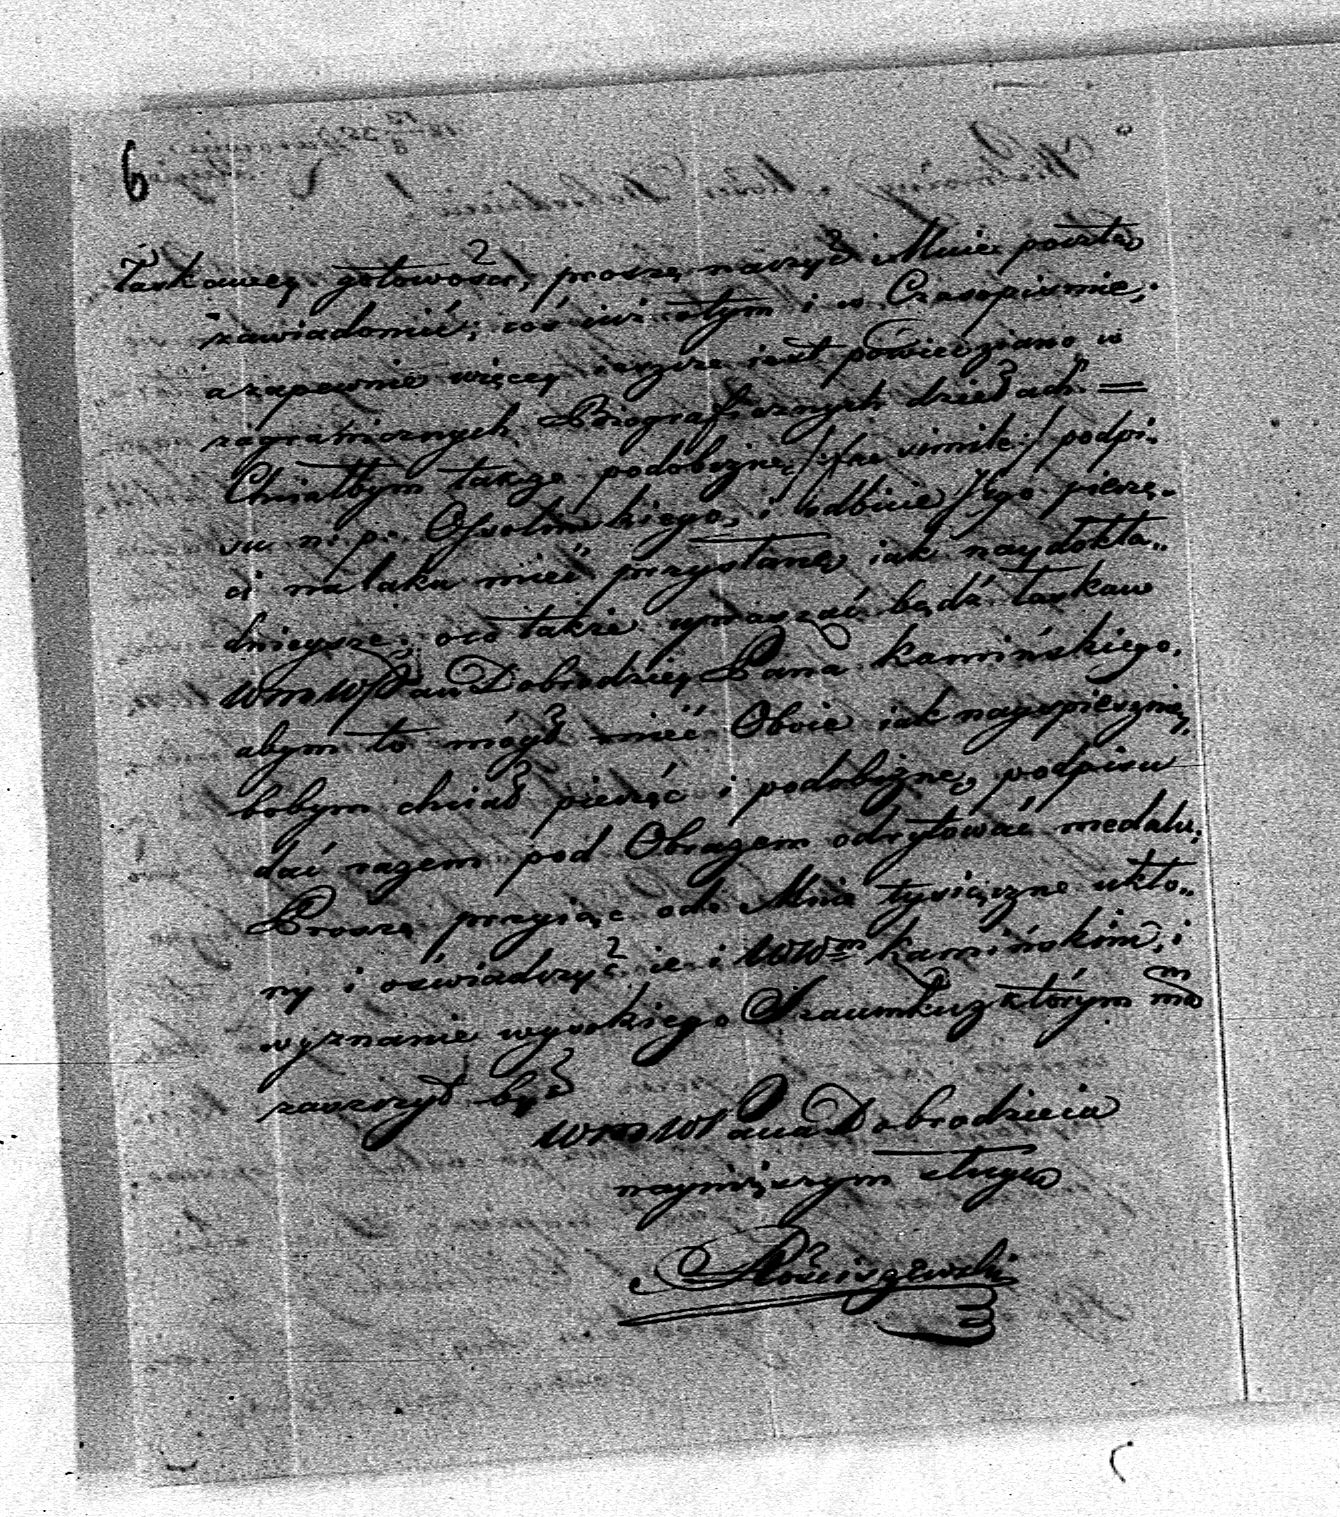 6
łaskawey gotowości, proszę naszyć i Mnie pocztą
zawiadomić; coś iuż o tym i w Czasopismie,
a zapewnie więcey ieszcze iest powiedziano w
zagranicznych Biograficznych dziełach =
Chciałbym także podobiznę /:fac simile:/ podpi„
su n: p: Ossolińskiego, i odbicie Jego pieczę„
ci na laku mieć przysłaną iak naydokła„
dnieysze, oco także upraszać bądź łaskaw
WmWPan Dobrodziey Pana Kamińskiego,
abym to mógł mieć Oboie iak nayspieszniey,
bobym chciał pieczęć i podobiznę, podpisu
dać razem pod Obrazem odrytować medalu,
Proszę przyiąć odo Mnie tysiączne ukło„
ny i oświadczyć ie i WWm Kamińskim, i
wyznanie wysokiego Szacunku z którym mam
zaszczyt być
WmWPana Dobrodzieia
nayniższym sługą
Rościszewski